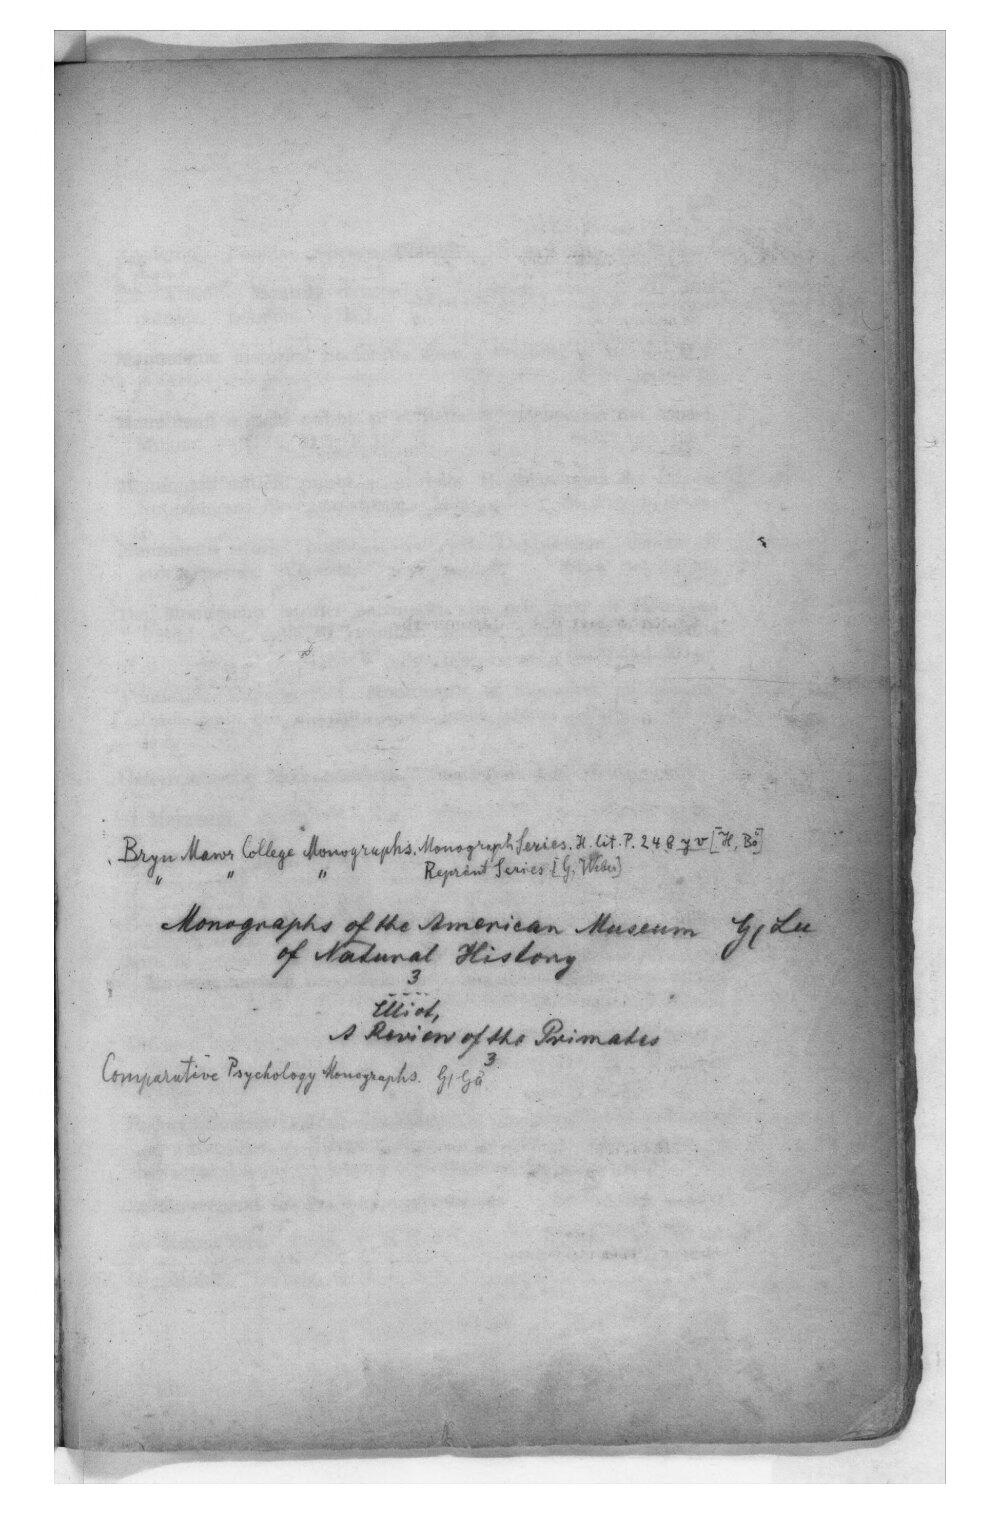 Bryn Mawr College Monographs. Monograph Series. H. lit. P. 248 yv [H, Bö]
" " " Reprint Series [G, Wibu]
Monographs of the American Museum G, Lu
of Natural History
3
Elliot,
A Review of the Primates
3
Comparative Psychology Monographs. G, Gö